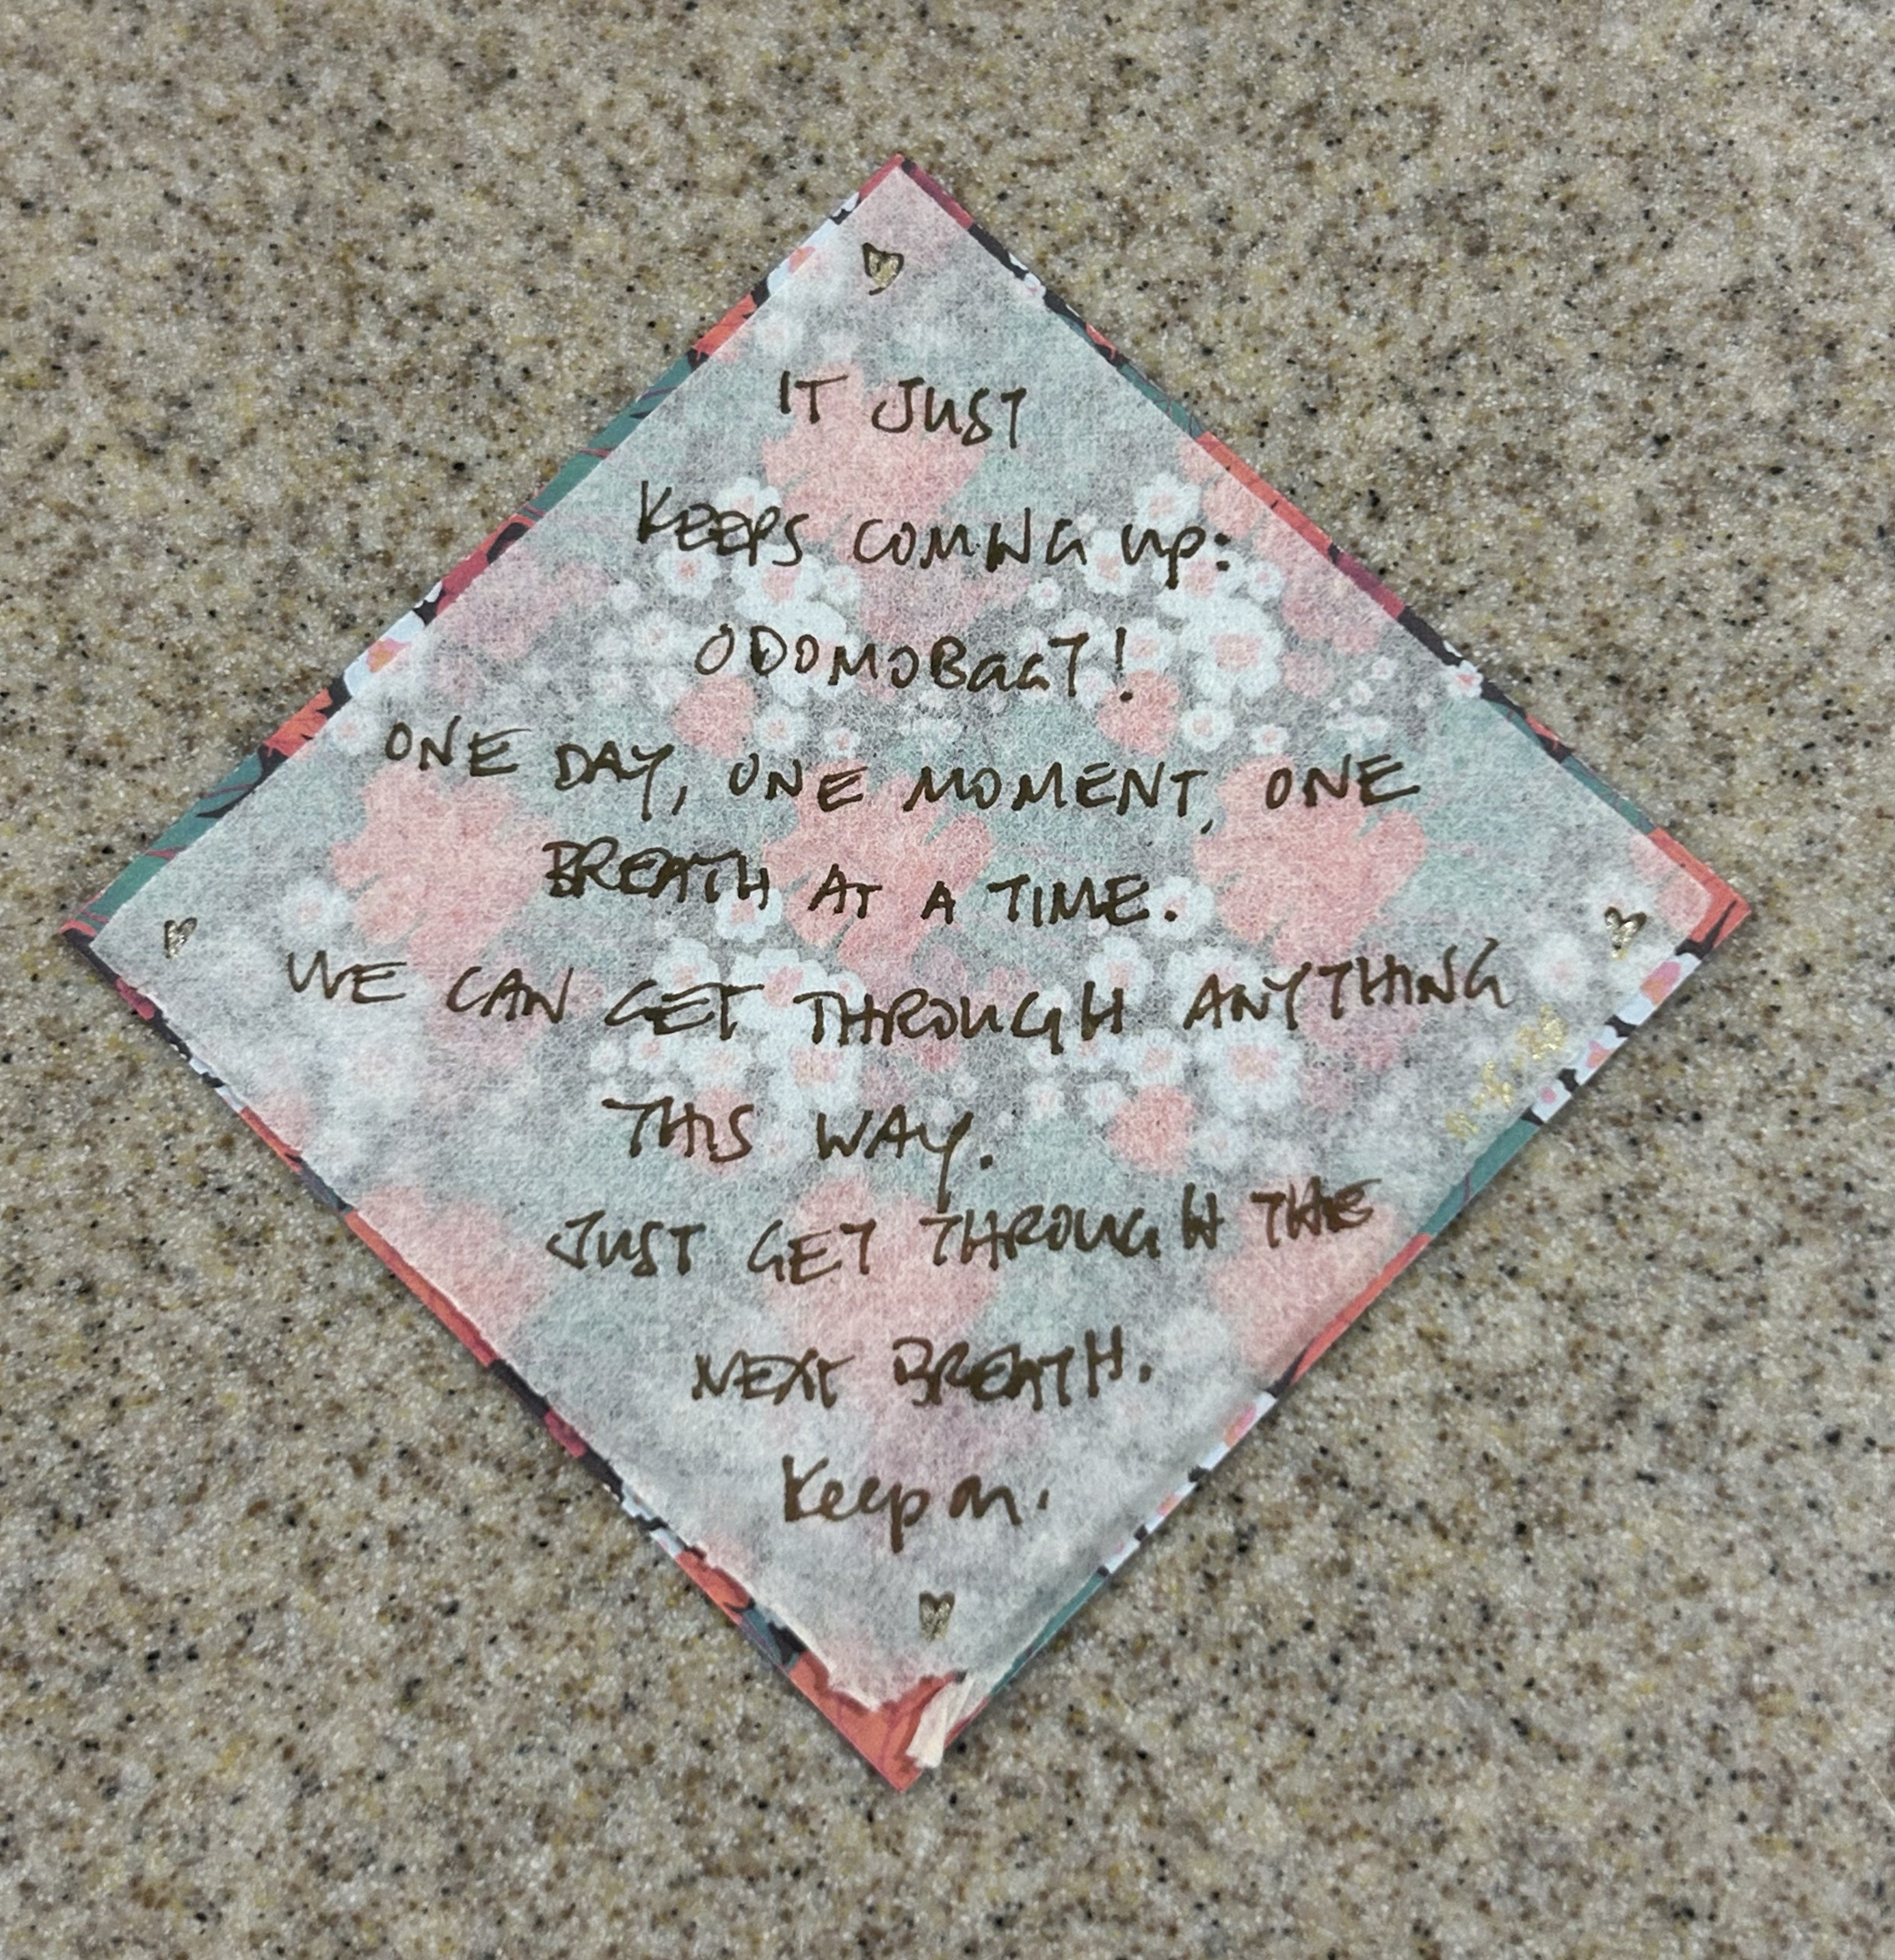 IT JUST
KEEPS COMING UP:
ODOMOBaaT!
ONE DAY, ONE MOMENT, ONE
BREATH AT A TIME.
WE CAN GET THROUGH ANYTHING
THIS WAY.
JUST GET THROUGH THE
NEXT BREATH.
Keep on.